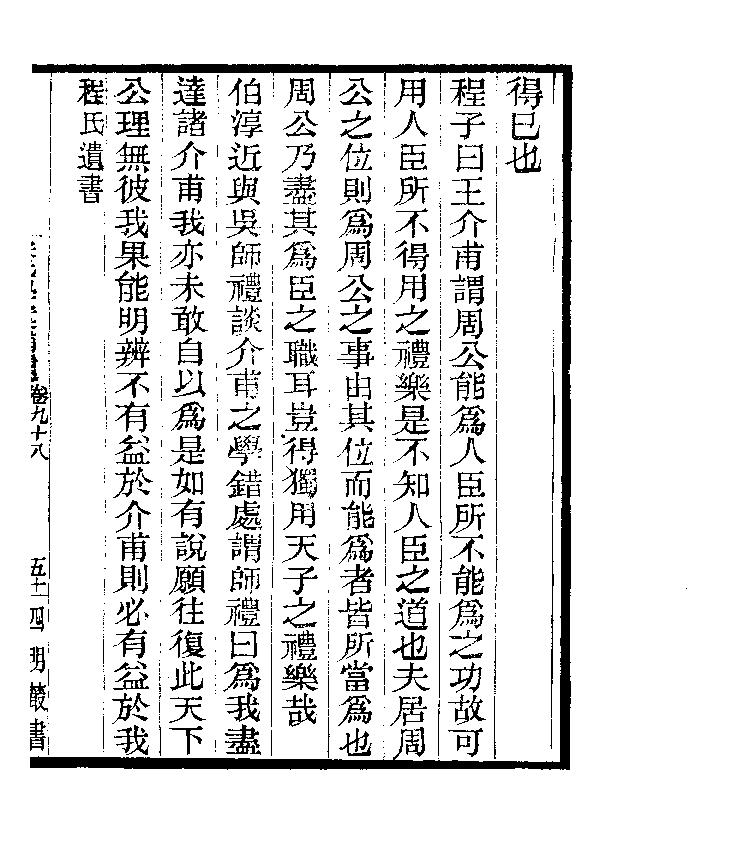 得已也
程子曰王介甫謂周公能為人臣所不能為之功故可
用人臣所不得用之禮樂是不知人臣之道也夫居周
公之位則為周公之事由其位而能為者皆所當為也
周公乃盡其為臣之職耳豈得獨用天子之禮樂哉
伯淳近與吳師禮談介甫之學錯處謂師禮曰為我盡
達諸介甫我亦未敢自以為是如有說願往復此天下
公理無彼我果能明辨不有益於介甫則必有益於我
程氏遺書
卷九十八
五十一四明叢書